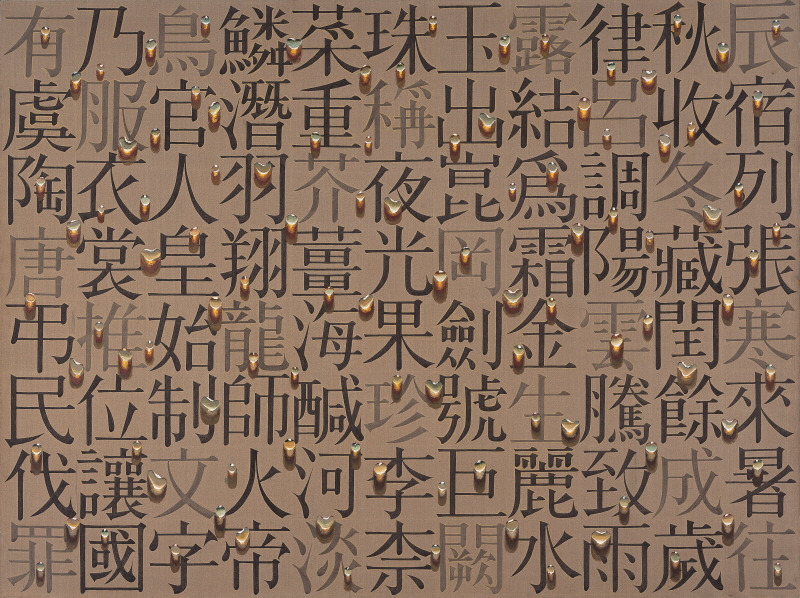 辰宿列張寒來暑往
秋收冬藏閏餘成歲
律呂調陽雲騰致雨
露結爲霜金生麗水
玉出崑岡劍號巨闕
珠稱夜光果珍李柰
菜重芥薑海醎河淡
鱗潛羽翔龍師火帝
鳥官人皇始制文字
乃服衣裳推位讓國
有虞陶唐弔民伐罪